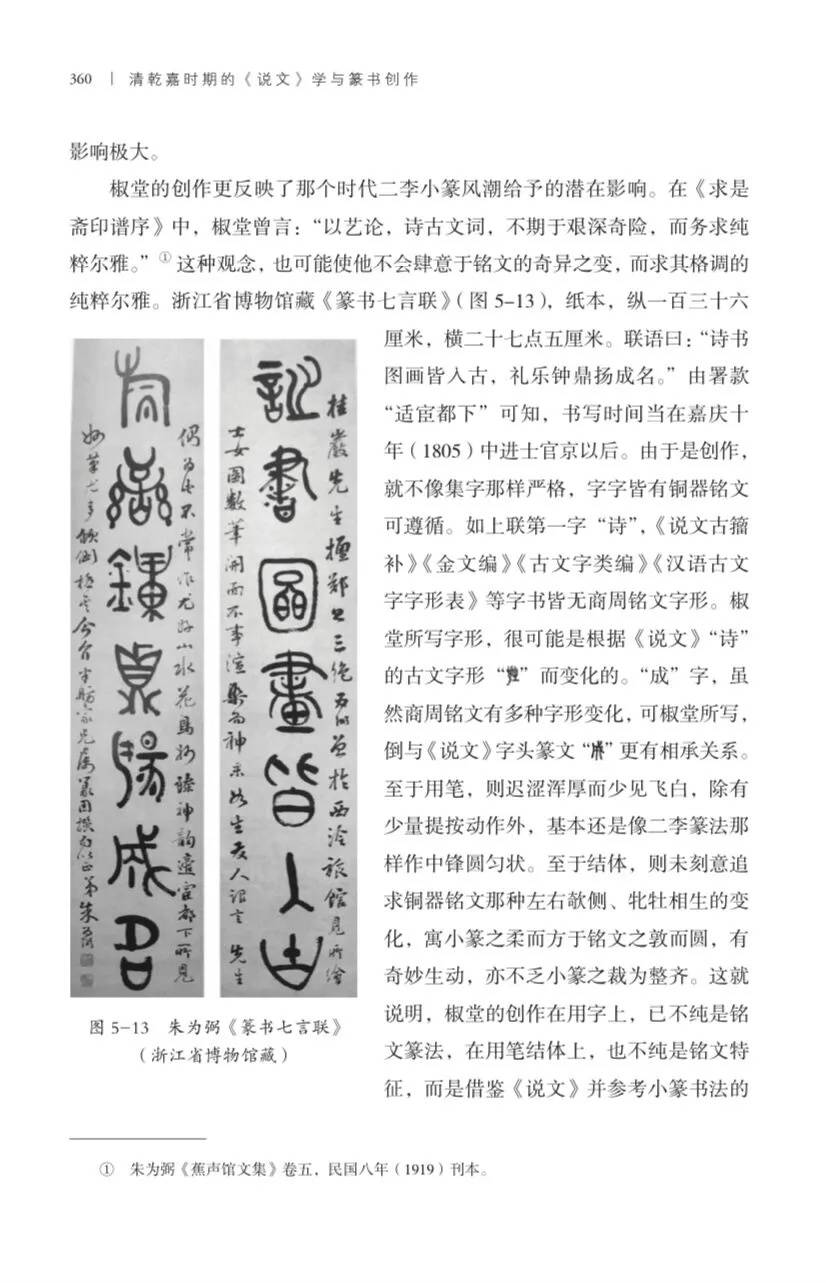 360 | 清乾嘉时期的《说文》学与篆书创作
影响极大。
椒堂的创作更反映了那个时代二李小篆风潮给予的潜在影响。在《求是
斋印谱序》中，椒堂曾言：“以艺论，诗古文词，不期于艰深奇险，而务求纯
粹尔雅。”①这种观念，也可能使他不会肆意于铭文的奇异之变，而求其格调的
纯粹尔雅。浙江省博物馆藏《篆书七言联》（图 5-13），纸本，纵一百三十六
厘米，横二十七点五厘米。联语曰：“诗书
图画皆入古，礼乐钟鼎扬成名。”由署款
“适宦都下”可知，书写时间当在嘉庆十
年（1805）中进士官京以后。由于是创作，
就不像集字那样严格，字字皆有铜器铭文
可遵循。如上联第一字“诗”，《说文古籀
补》《金文编》《古文字类编》《汉语古文
字字形表》等字书皆无商周铭文字形。椒
堂所写字形，很可能是根据《说文》“诗”
的古文字形“”而变化的。“成”字，虽
然商周铭文有多种字形变化，可椒堂所写，
倒与《说文》字头篆文“”更有相承关系。
至于用笔，则迟涩浑厚而少见飞白，除有
少量提按动作外，基本还是像二李篆法那
样作中锋圆匀状。至于结体，则未刻意追
求铜器铭文那种左右欹侧、牝牡相生的变
化，寓小篆之柔而方于铭文之敦而圆，有
奇妙生动，亦不乏小篆之裁为整齐。这就
说明，椒堂的创作在用字上，已不纯是铭
文篆法，在用笔结体上，也不纯是铭文特
征，而是借鉴《说文》并参考小篆书法的
桂巖先生擅鄭公三絶 於西泠旅館見所繪
詩書圖畫皆入古
士女圖數筆 而不事渲染而神采如生友人 言先生
不常作尤好山水花鳥 臻神韻適宦都下所見
樂鐘鼎揚成名
图 5-13 朱为弼《篆书七言联》
（浙江省博物馆藏）
① 朱为弼《蕉声馆文集》卷五，民国八年（1919）刊本。